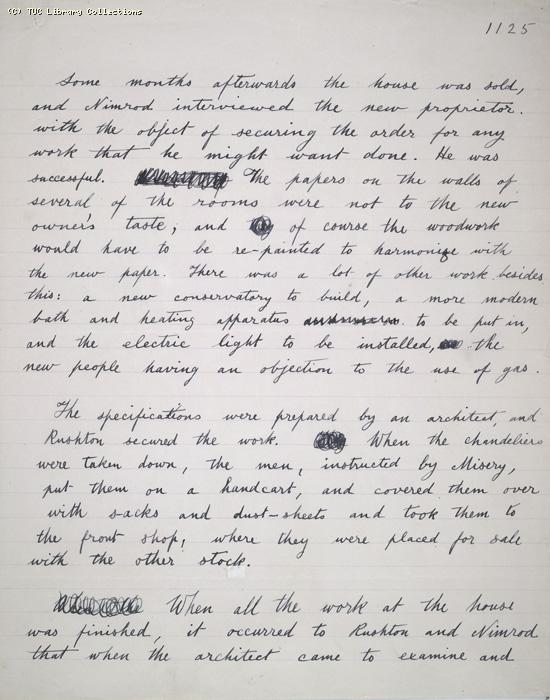 (C) TUC Library Collections
1125
Some months afterwards the house was sold,
and Nimrod interviewed the new proprietor.
with the object of securing the order for any
work that he might want done. He was
successful. The papers on the walls of
several of the rooms were not to the new
owner's taste; and of course the woodwork
would have to be re-painted to harmonize with
the new paper. There was a lot of other work besides
this: a new conservatory to build, a more modern
bath and heating apparatus to be put in,
and the electric light to be installed, the
new people having an objection to the use of gas.
The specifications were prepared by an architect, and
Rushton secured the work. When the chandeliers
were taken down, the men, instructed by Misery,
put them on a handcart, and covered them over
with sacks and dust-sheets and took them to
the front shop, where they were placed for sale
with the other stock.
When all the work at the house
was finished, it occurred to Rushton and Nimrod
that when the architect came to examine and